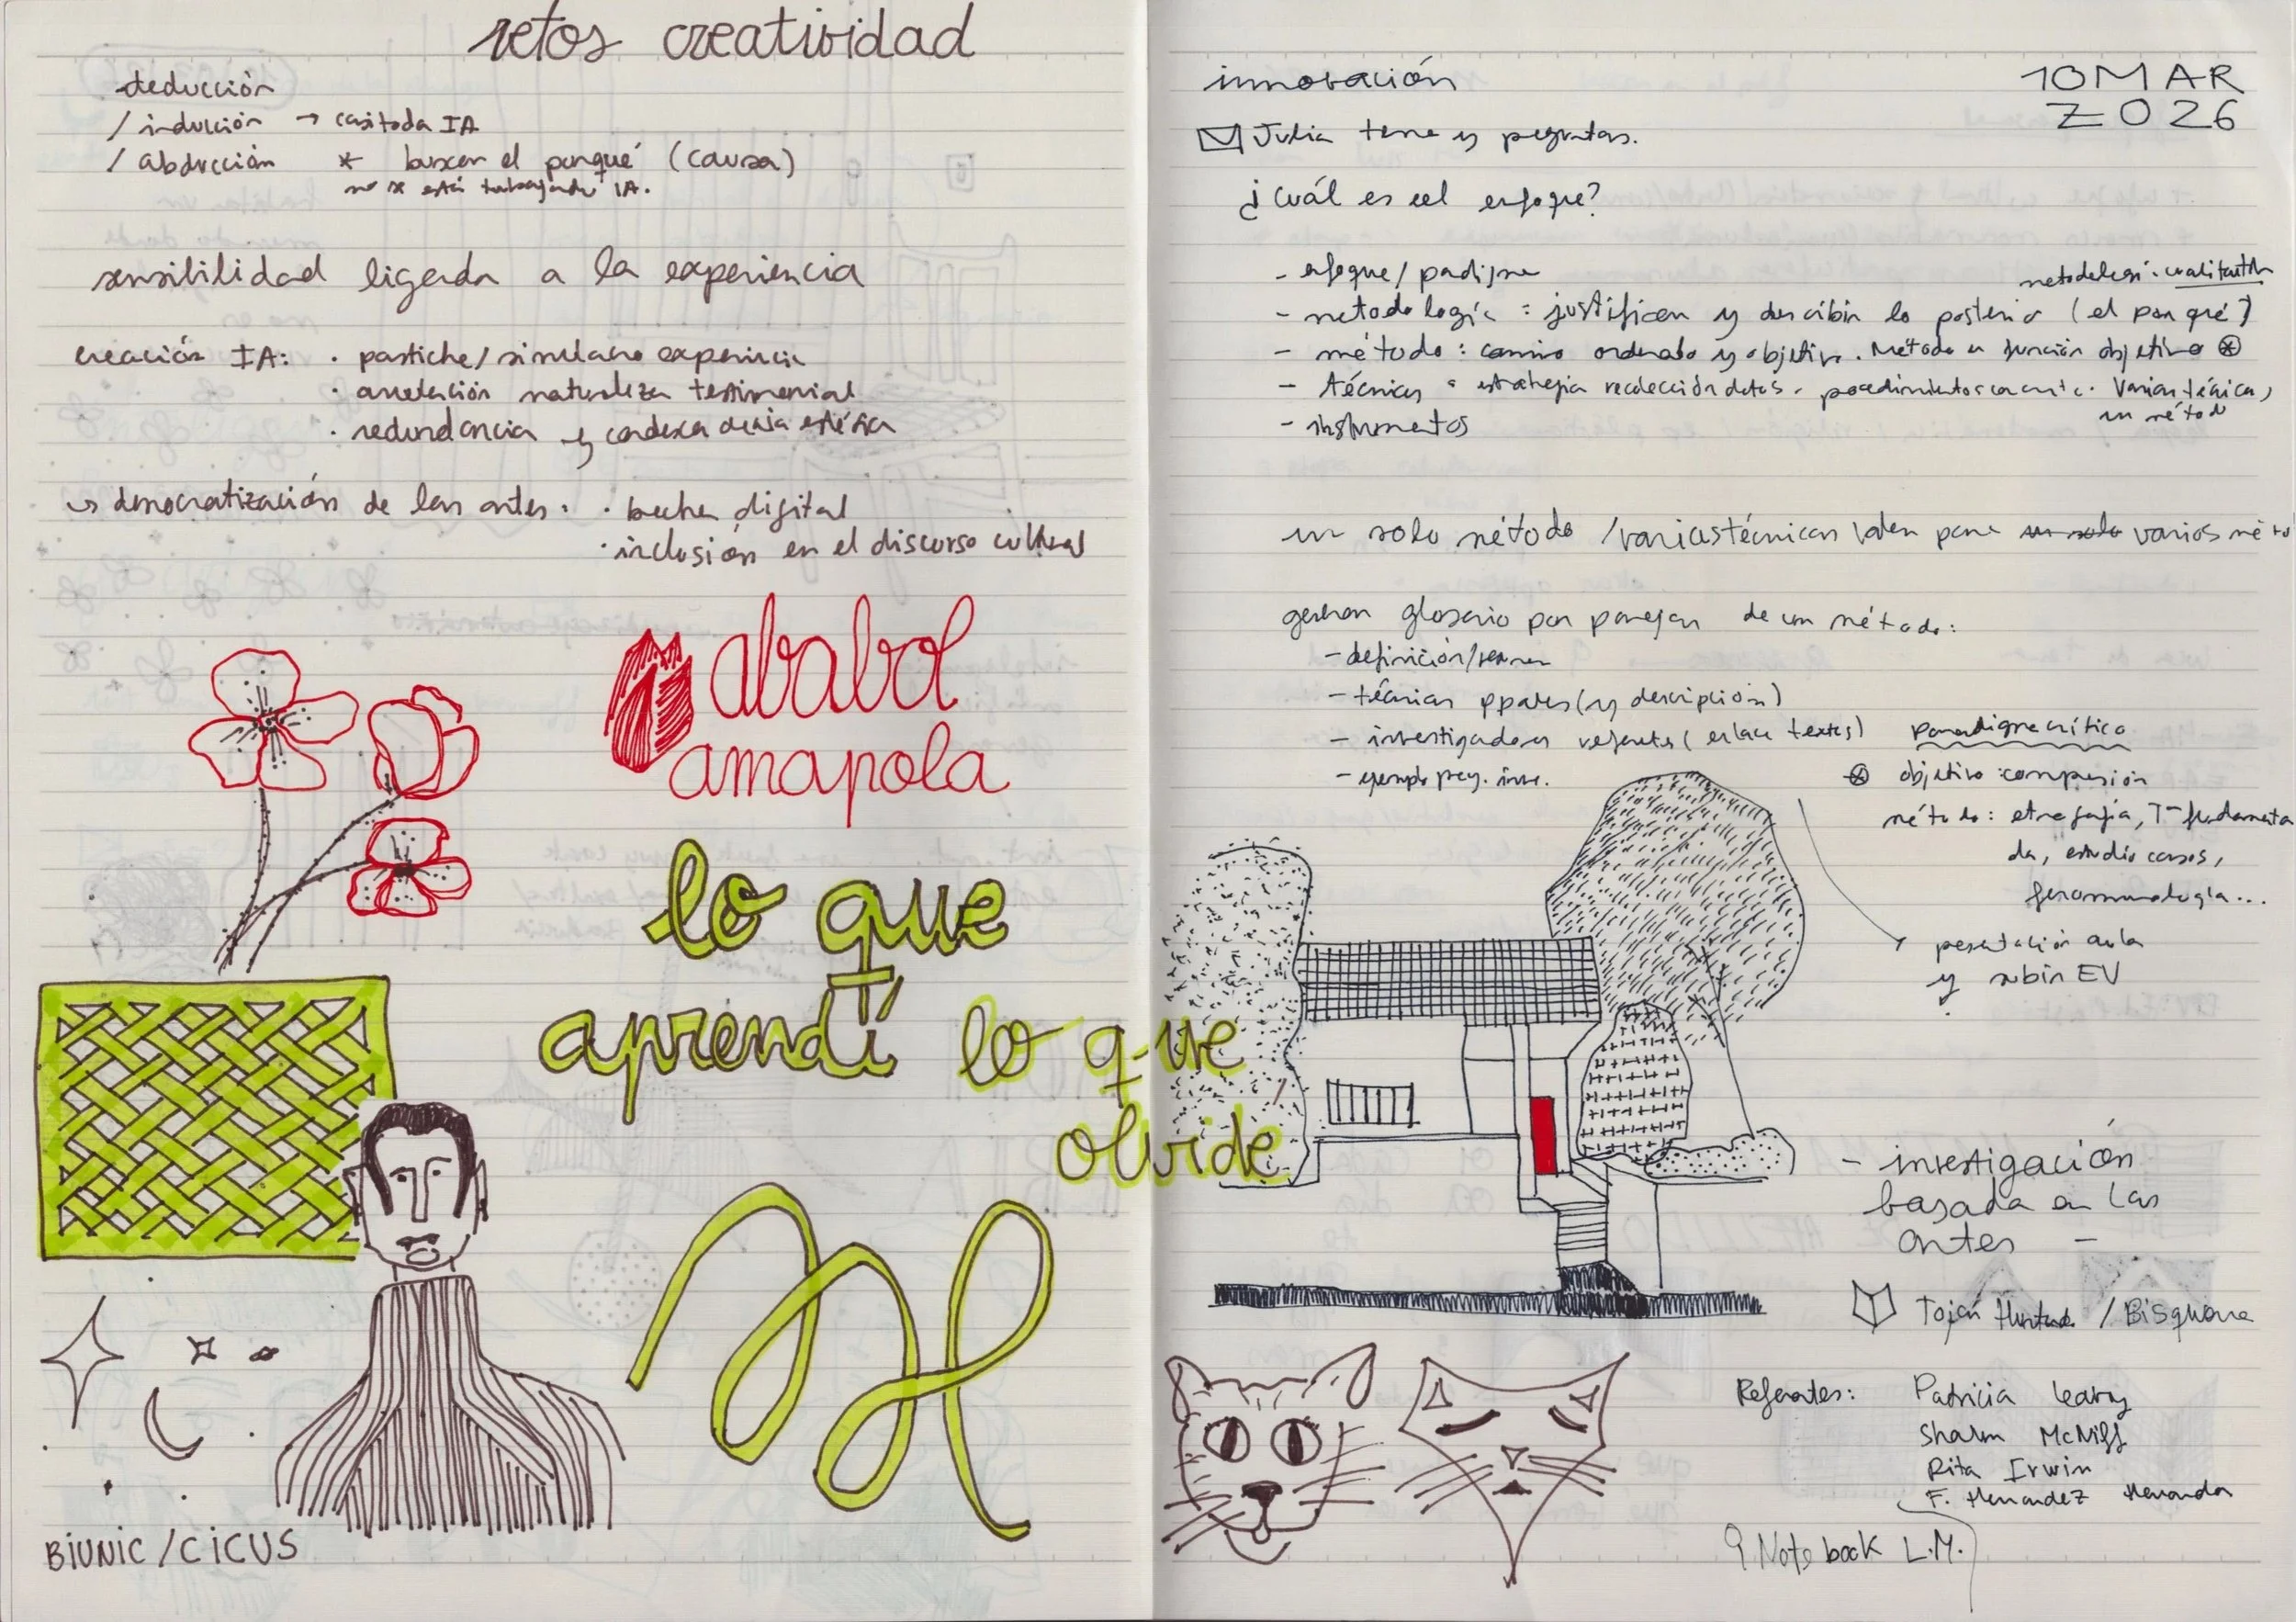 retos creatividad
deducción
/ inducción → casi toda IA
/ abducción * buscar el porqué (causa)
no se está trabajando IA.
sensibilidad ligada a la experiencia
creación IA: · pastiche/simulacro experiencia
· naturaleza testimonial
· redundancia y estética
↳ democratización de las artes: · brecha digital
· inclusión en el discurso cultural
ababol
amapola
lo que
aprendí lo que
olvide
BIUNIC/CICUS
innovación
10 MAR
2026
Julia tema y preguntas.
¿Cuál es el enfoque?
- enfoque/paradigma
metodología cualitativa
- metodología: justifican y describen lo posterior (el porqué)
- método: camino ordenado y objetivo. Método en función objetivo ⊛
- técnicas: estrategia recolección datos. procedimientos concretos. Varias técnicas,
un método
- instrumentos
un solo método / varias técnicas valen para un solo varios méto
generar glosario por parejas de un método:
- definición/
- técnicas ppales (y descripción)
- investigadores referentes (enlace textos)
- ejemplo preg. inve.
paradigma crítico
⊛ objetivo: comprensión
método: etnografía, T-fundamenta
da, estudio casos,
fenomenología...
presentación aula
y subir EV
- investigación
basada en las
artes -
/ Bisquona
Referentes: Patricia Leavy
Shaun McNiff
Rita Irwin
F. Hernandez Hernandez
Notebook L.M.